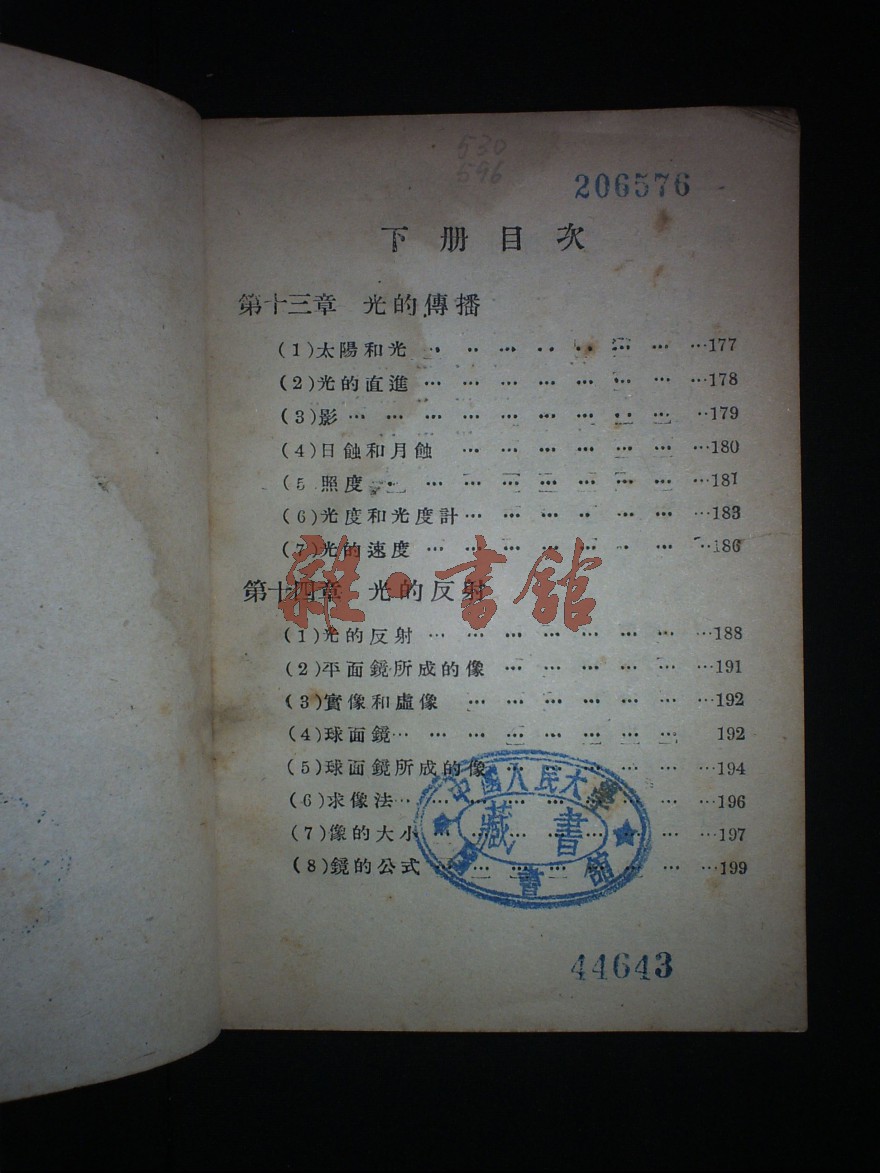 530
596
206576
下册目次
第十三章 光的傳播
(1)太陽和光 … … … … … … … … …177
(2)光的直進 … … … … … … … … …178
(3)影 … … … … … … … … … … …179
(4)日蝕和月蝕 … … … … … … … …180
(5 照度 … … … … … … … … … …181
(6)光度和光度計 … … … … … … …183
(7)光的速度 … … … … … … … … …186
第十四章 光的反射
(1)光的反射 … … … … … … … … …188
(2)平面鏡所成的像 … … … … … … …191
(3)實像和虛像 … … … … … … … …192
(4)球面鏡 … … … … … … … … 192
(5)球面鏡所成的像 … … … … … … …194
(6)求像法 … … … … … … … … …196
(7)像的大小 … … … … … … … … …197
(8)鏡的公式 … … … … … … … … …199
雜·書館
中國人民大學
藏書
圖書館
44643